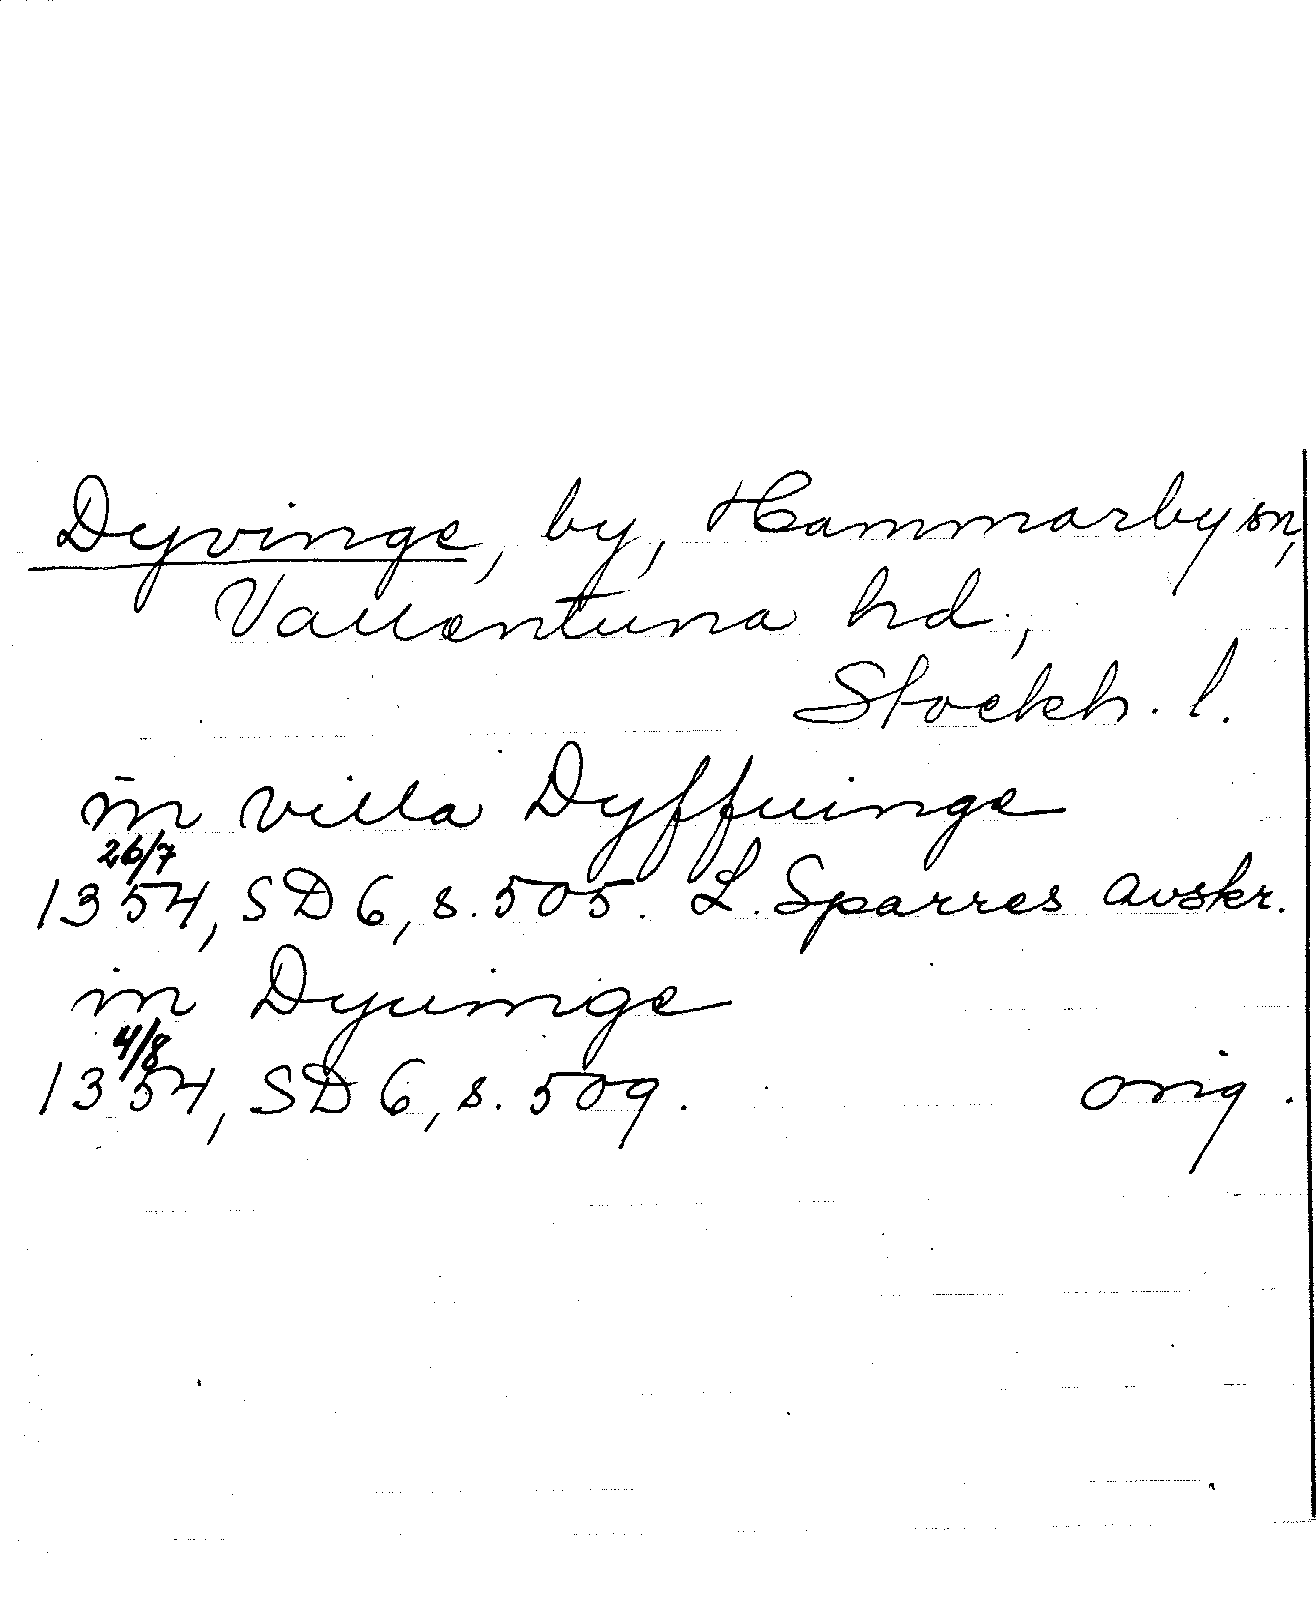 Dyvinge, by, Hammarby sn,
Vallentuna hd.,
Stockh. l.
in villa Dyffuinge
26/7
1354, SD 6, s. 505. L. Sparres avskr.
in Dyuinge
4/8
1354, SD 6, s. 509. orig.